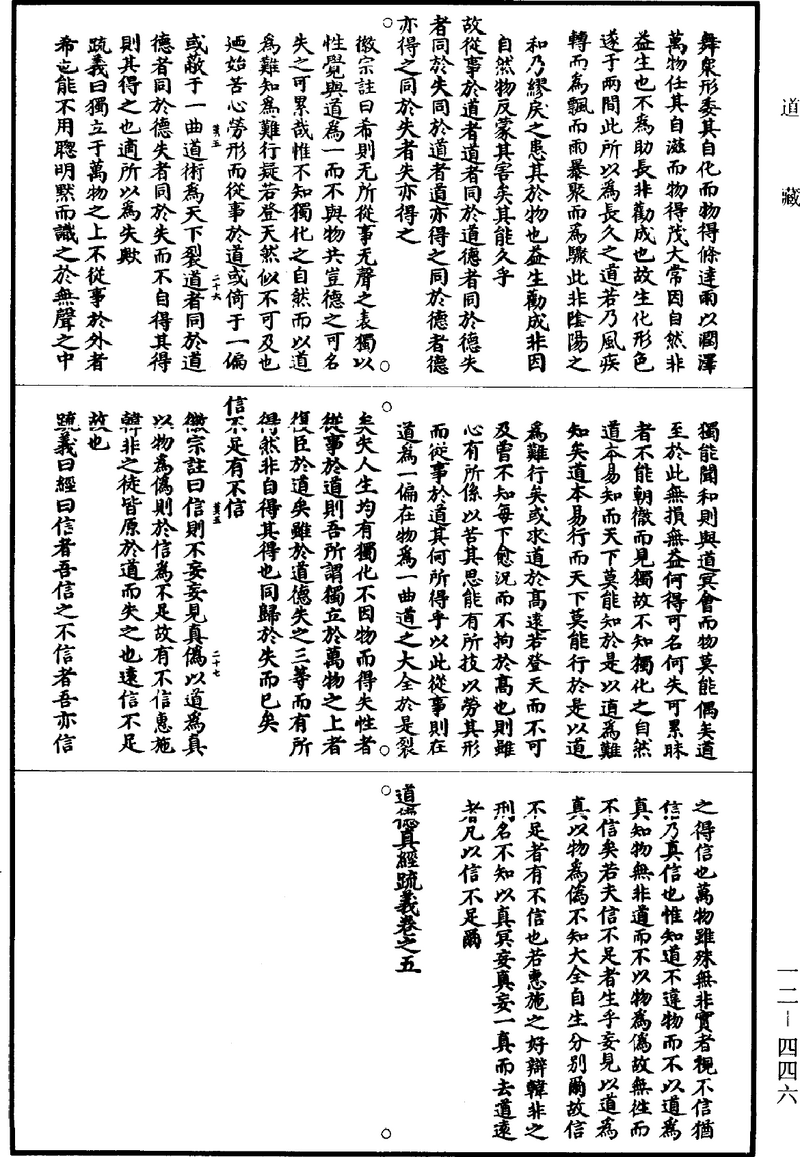 道藏
舞衆形委其自化而物得條達雨以潤澤
萬物任其自滋而物得茂大常因自然非
益生也不為助長非勸成也故生化形色
遂于兩間此所以為長久之道若乃風疾
轉而為飄而雨暴聚而為驟此非陰陽之
和乃繆戾之患其於物也益生勸成非因
自然物反蒙其害矣其能久乎
故從事於道者道者同於道德者同於德失
者同於失同於道者道亦得之同於德者德
亦得之同於失者失亦得之
徽宗註曰希則无所從事无聲之表獨以
性覺與道為一而不與物共豈德之可名
失之可累哉惟不知獨化之自然而以道
為難知為難行疑若登天然似不可及也
廼始苦心勞形而從事於道或倚于一偏
莫五 二十六
或蔽于一曲道術為天下裂道者同於道
德者同於德失者同於失而不自得其得
則其得之也適所以為失歟
疏義曰獨立于萬物之上不從事於外者
希也能不用聰明默而識之於無聲之中
獨能聞和則與道冥會而物莫能偶矣道
至於此無損無益何得可名何失可累昧
者不能朝徹而見獨故不知獨化之自然
道本易知而天下莫能知於是以道為難
知矣道本易行而天下莫能行於是以道
為難行矣或求道於高遠若登天而不可
及曾不知每下愈況而不拘於高也則雖
心有所係以苦其思能有所技以勞其形
而從事於道其何所得乎以此從事則在
道為一偏在物為一曲道之大全於是裂
矣夫人生均有獨化不因物而得失性者
從事於道則吾所謂獨立於萬物之上者
復臣於道矣雖於道德失之三等而有所
得然非自得其得也同歸於失而已矣
信不足有不信
莫五 二十七
徽宗註曰信則不妄妄見真偽以道為真
以物為偽則於信為不足故有不信惠施
韓非之徒皆原於道而失之也遠信不足
故也
疏義曰經曰信者吾信之不信者吾亦信
之得信也萬物雖殊無非實者視不信猶
信乃真信也惟知道不違物而不以道為
真知物無非道而不以物為偽故無往而
不信矣若夫信不足者生乎妄見以道為
真以物為偽不知大全自生分別爾故信
不足者有不信也若惠施之好辯韓非之
刑名不知以真冥妄真妄一真而去道遠
者凡以信不足爾
道德真經疏義卷之五
一二－四四六